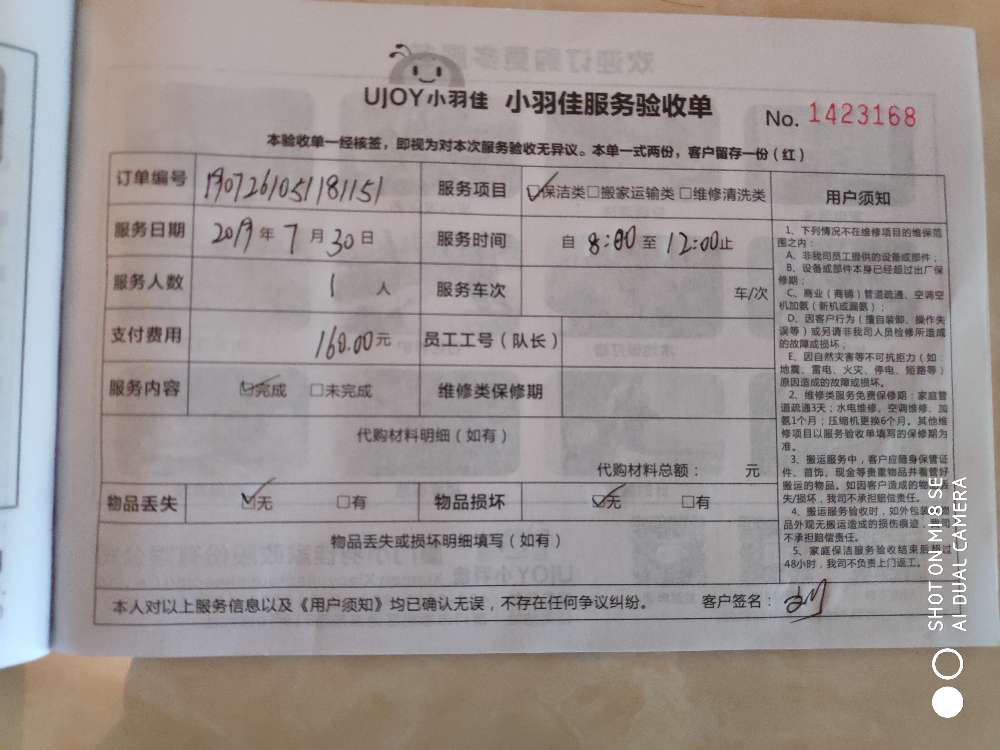 UJOY小羽佳 小羽佳服务验收单 No. 1423168
本验收单一经核签，即视为对本次服务验收无异议。本单一式两份，客户留存一份（红）
订单编号 1907261051181151 服务项目 ☑保洁类□搬家运输类□维修清洗类
服务日期 2019年7月30日 服务时间 自8:00至12:00止
服务人数 1人 服务车次 车/次
支付费用 160.00元 员工工号（队长）
服务内容 ☑完成 □未完成 维修类保修期
代购材料明细（如有）
代购材料总额： 元
物品丢失 ☑无 □有 物品损坏 ☑无 □有
物品丢失或损坏明细填写（如有）
用户须知
1、下列情况不在维修项目的维保范
围之内：
A、非我司员工提供的设备或部件；
B、设备或部件本身已经超过出厂保
修期；
C、商业（商铺）管道疏通、空调空
机加氨（新机或漏氨）；
D、因客户行为（擅自装卸、操作失
误等）或另请非我司人员检修所造成
的故障或损坏；
E、因自然灾害等不可抗拒力（如：
地震、雷电、火灾、停电、短路等）
原因造成的故障或损坏。
2、维修类服务免费保修期：家庭管
道疏通3天；水电维修、空调维修、加
氨1个月；压缩机更换6个月。其他维
修项目以服务验收单填写的保修期为
准。
3、搬运服务中，客户应随身保管证
件、首饰、现金等贵重物品并看管好
搬运的物品。如因客户造成的物品丢
失/损坏，我司不承担赔偿责任。
4、搬运服务验收时，如外包装或物
品外观无搬运造成的损伤痕迹，我司
不承担赔偿责任。
5、家庭保洁服务验收结束后超过
48小时，我司不负责上门返工。
本人对以上服务信息以及《用户须知》均已确认无误，不存在任何争议纠纷。 客户签名：
SHOT ON MI 8 SE
AI DUAL CAMERA